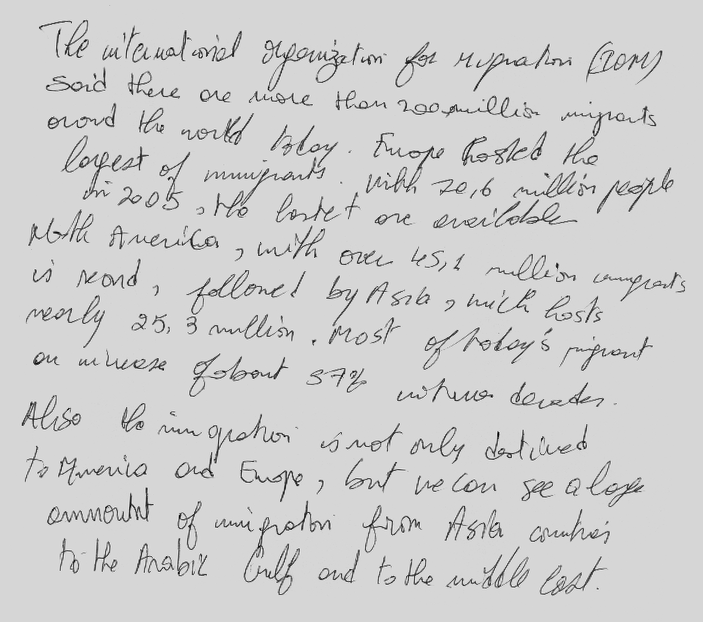 The international organization for migration (IOM)
said there are more than 200 million migrants
around the world today. Europe hosted the
largest of immigrants. With 70,6 million people
in 2005, the lastet are available
North America, with over 45,1 million immigrants
is second, followed by Asia, which hosts
nearly 25,3 million. Most of today's migrant
an increase of about 37% in decades.
Also the immigration is not only destined
to America and Europe, but we can see a large
ammount of immigration from Asia countries
to the Arabic Gulf and to the middle East.